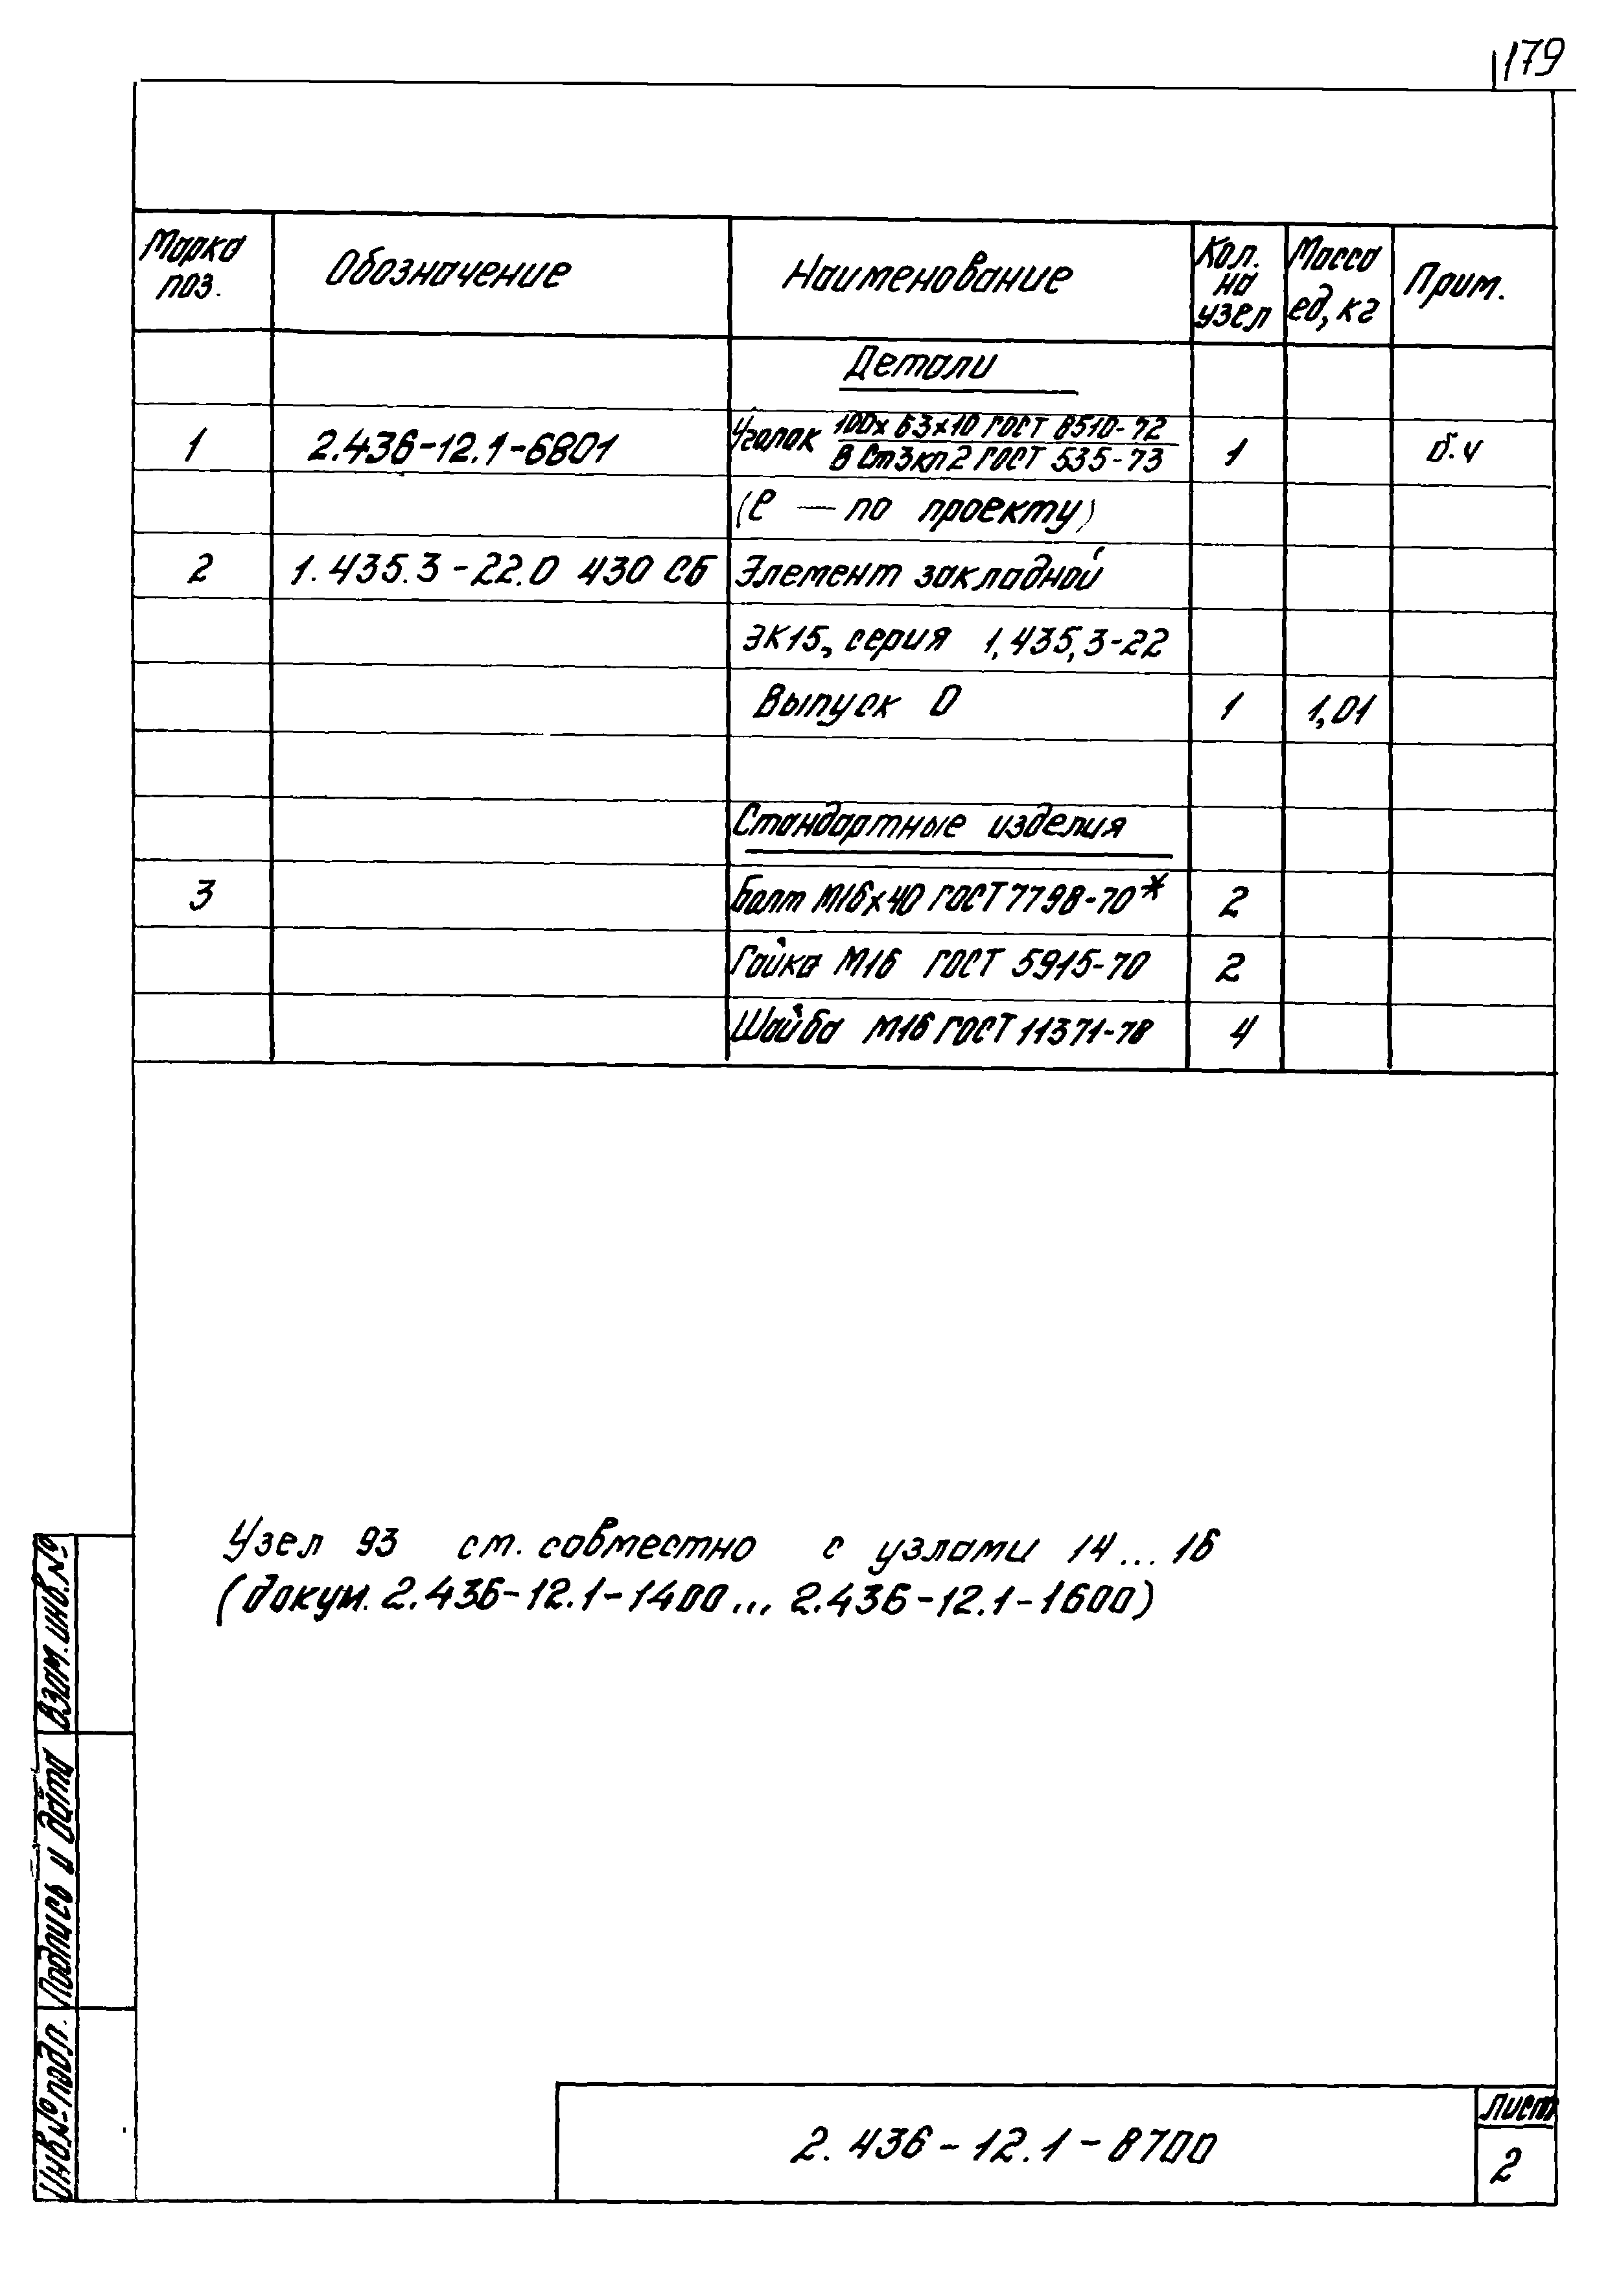 179
Марка поз.
Обозначение
Наименование
Кол. на узел
Масса ед, кг
Прим.
Детали
1 2.436-12.1-6801 Уголок 100х63х10 ГОСТ 8510-72 / В Ст3кп2 ГОСТ 535-73 1 б.ч
(ℓ — по проекту)
2 1.435.3-22.0 430 СБ Элемент закладной
ЗК15, серия 1,435,3-22
Выпуск 0 1 1,01
Стандартные изделия
3 Болт М16х40 ГОСТ 7798-70* 2
Гайка М16 ГОСТ 5915-70 2
Шайба М16 ГОСТ 11371-78 4
Узел 93 см. совместно с узлами 14...16
(докум. 2.436-12.1-1400... 2.436-12.1-1600)
Взам. инв. №
Подпись и дата
Инв № подл.
2.436-12.1-8700
Лист
2